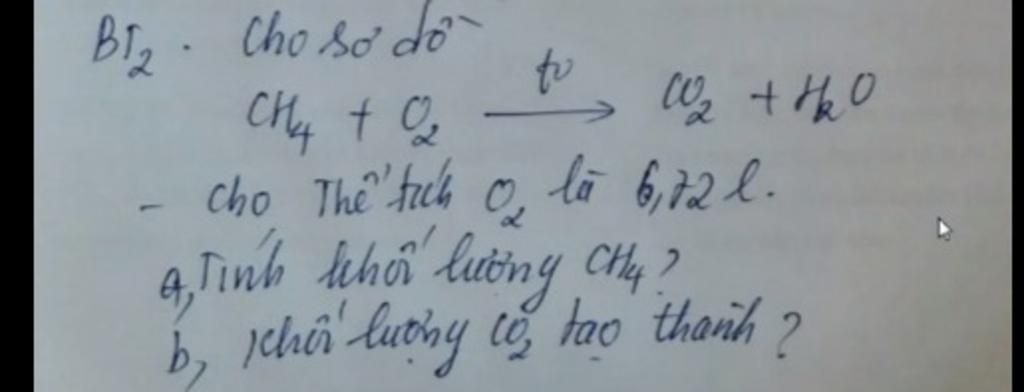 BT₂. Cho sơ đồ
CH₄ + O₂ —t⁰→ CO₂ + H₂O
- Cho Thể tích O₂ là 6,72 l.
a, Tính khối lượng CH₄?
b, Khối lượng CO₂ tạo thành?